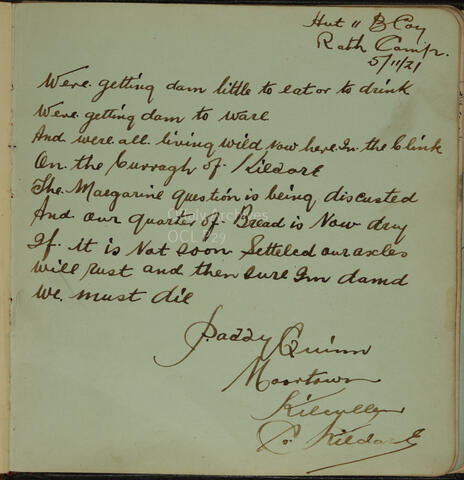 Hut 11 B Coy
Rath Camp.
5/11/21
Were getting dam little to eat or to drink
Were getting dam to ware
And were all living wild now here In the Clink
On the Curragh of Kildare
The Maegarine question is being discusted
And our quarter of Bread is Now dry
If it is Not soon Setteled our axles
will rust and then sure Im damd
we must die
Paddy Quinn
Moortown
Kilcullen
Co. Kildare
Offaly Archives
OCL P29